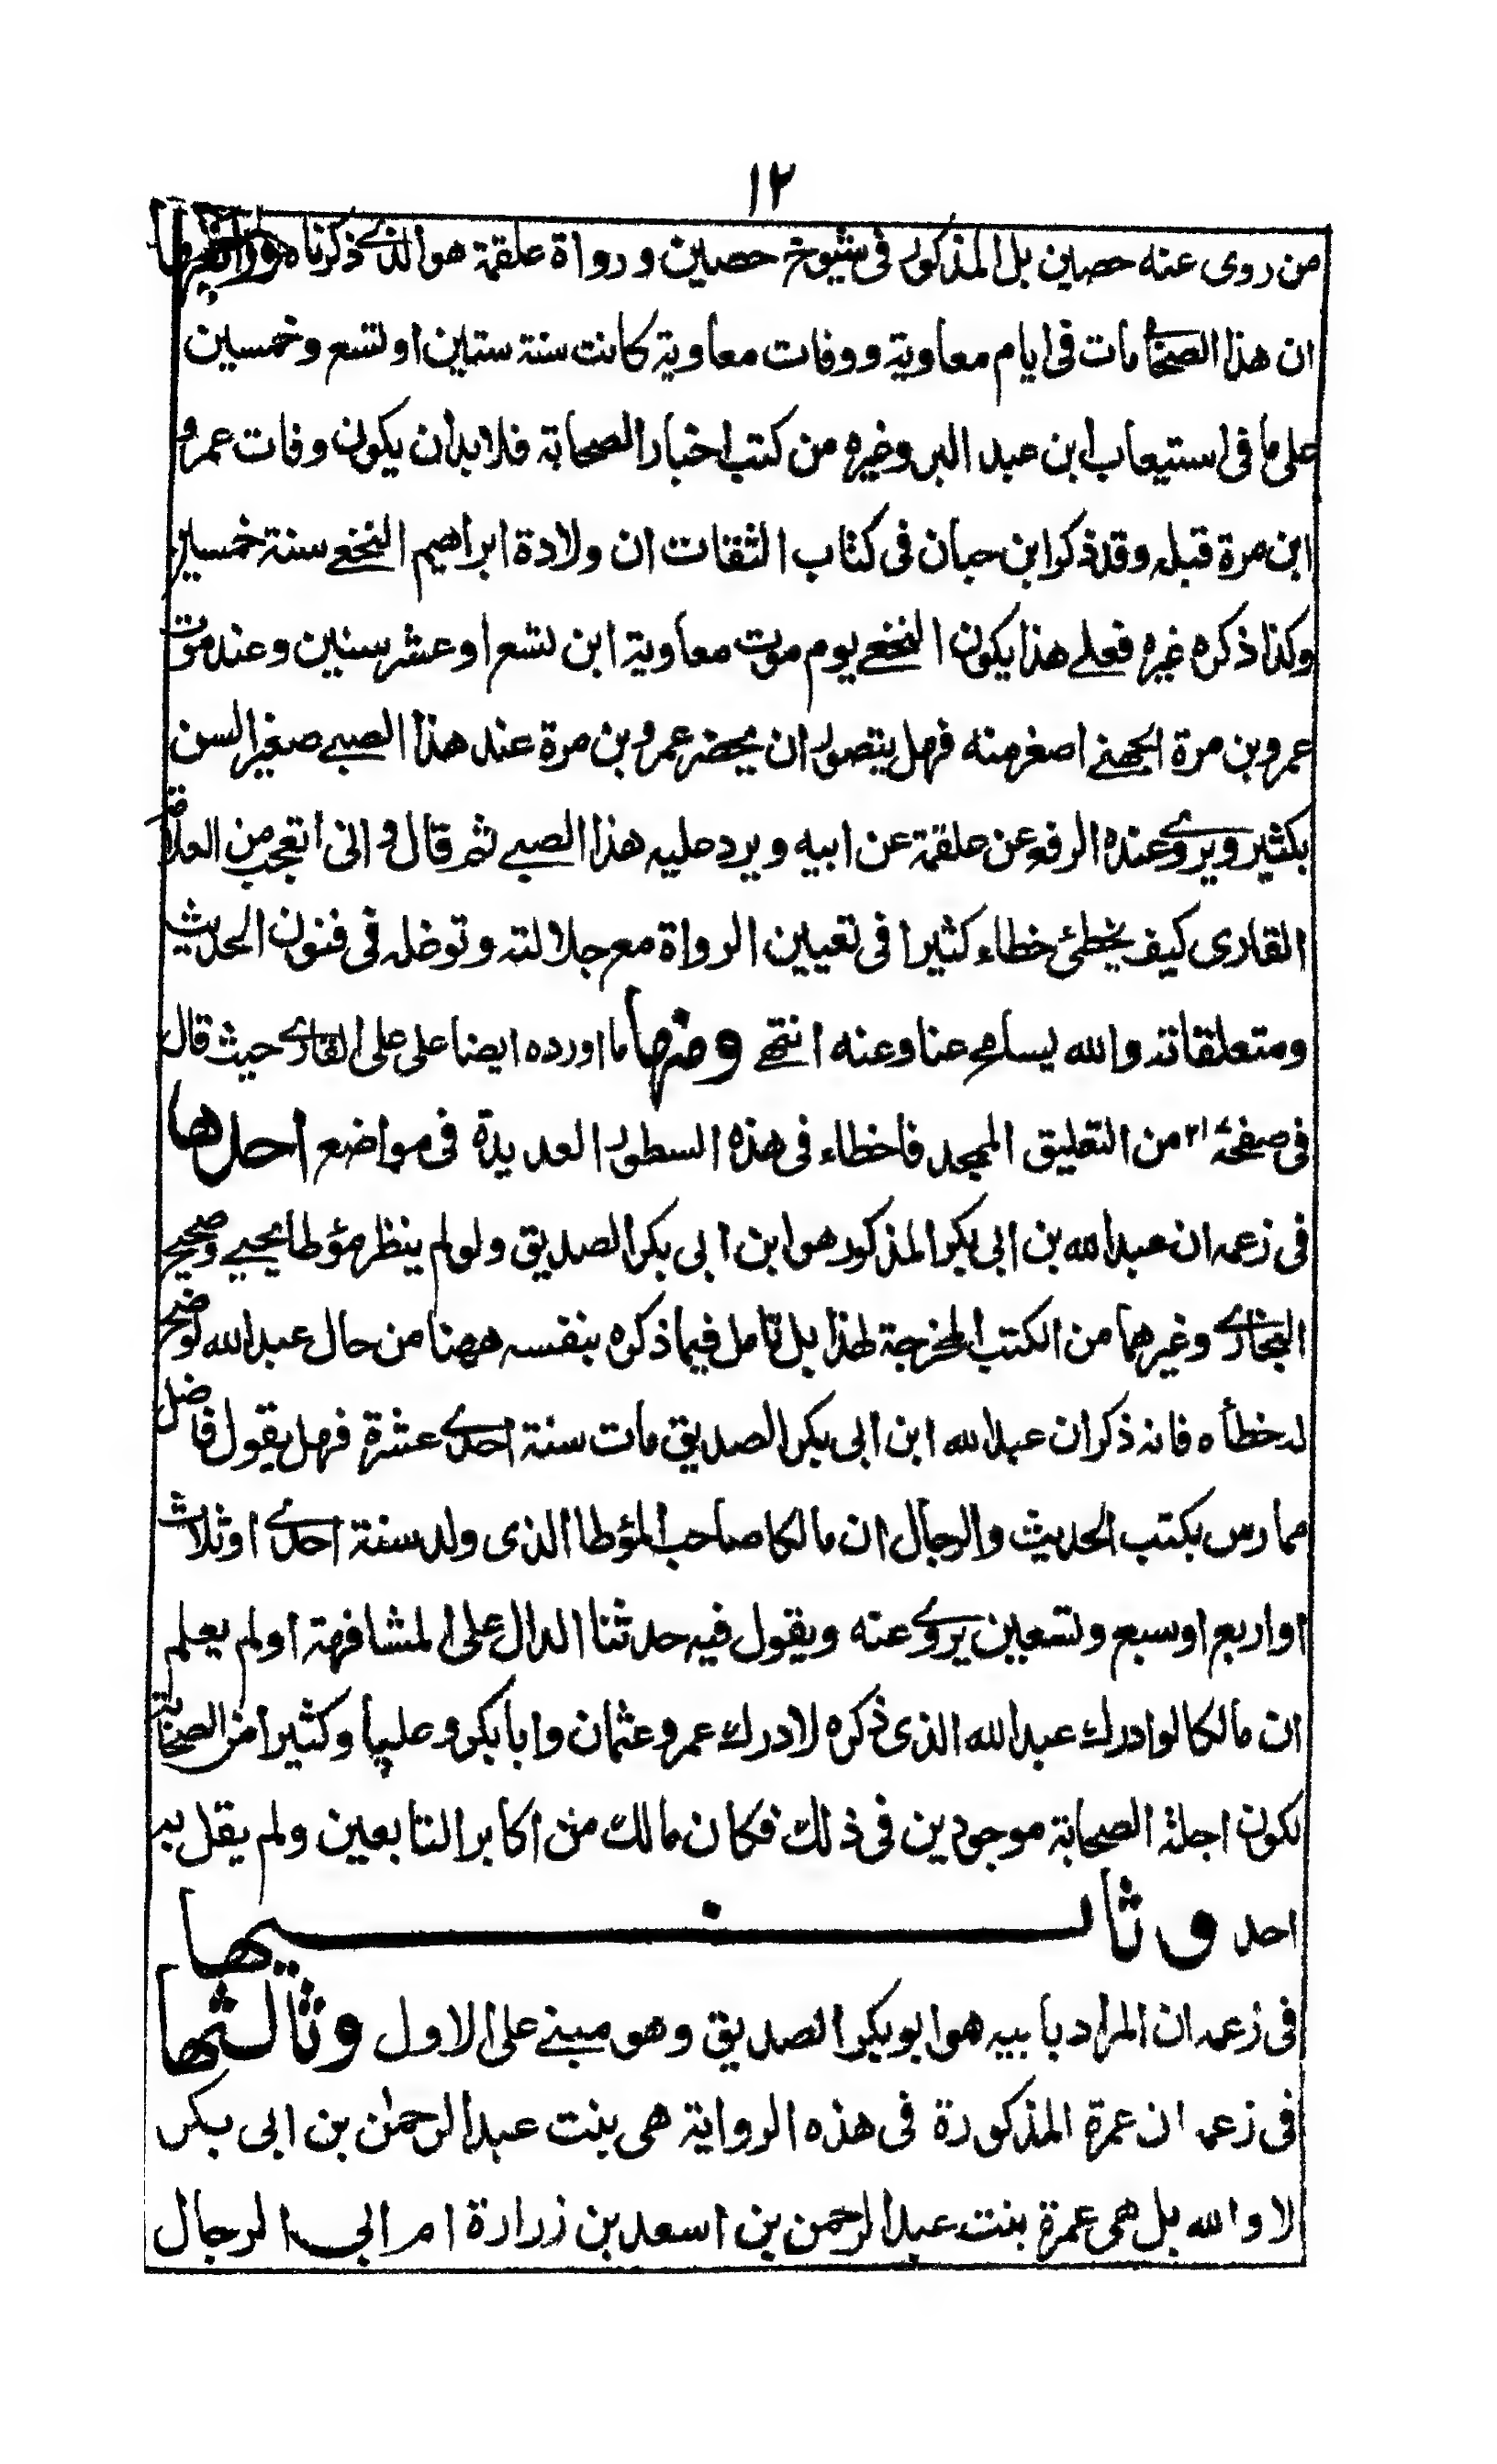 ١٢
من روى عنه حصين بل المذكور فى شيوخ حصين و رواة علقمة هو الذے ذكرناه
ان هذا الصحابے مات فى ايام معاوية ووفات معاوية كانت سنة ستين او تسع وخمسين
على ما فى استيعاب ابن عبد البر وغيره من كتب اخبار الصحابة فلا بد ان يكون وفات عمرو
ابن مرة قبله وقد ذكر ابن حبان فى كتاب الثقات ان ولادة ابراهيم النخعے سنة خمسين
وكذا ذكره غيره فعلے هذا يكون النخعے يوم موت معاوية ابن تسع او عشر سنين وعند موت
عمرو بن مرة الجهنے اصغر منه فهل يتصور ان يحضر عمرو بن مرة عند هذا الصبے صغير السن
بكثير ويروے عنده الرفع عن علقمة عن ابيه ويرد عليه هذا الصبے ثم قال وانى اتعجب من العلامة
القارى كيف يخطئ خطاء كثيرا فى تعيين الرواة مع جلالته وتوغله فى فنون الحديث
ومتعلقاته والله يسامح عنا وعنه انتهے ومنها ما اورده ايضا على على القارے حيث قال
فى صفحة ٢١ من التعليق الممجد فاخطاء فى هذه السطور العديدة فى مواضع احدها
فى زعمه ان عبد الله بن ابى بكر المذكور هو ابن ابى بكر الصديق ولو لم ينظر مؤطا يحيے وصحيح
البخارے وغيرهما من الكتب المخرجة لهذا بل تامل فيما ذكره بنفسه ههنا من حال عبد الله لوضح
له خطأه فانه ذكر ان عبد الله ابن ابى بكر الصديق مات سنة احدے عشرة فهل يقول فاضل
ممارس بكتب الحديث والرجال ان مالكا صاحب المؤطا الذى ولد سنة احدے او ثلاث
او اربع او سبع وتسعين يروے عنه ويقول فيه حدثنا الدال على المشافهة او لم يعلم
ان مالكا لو ادرك عبد الله الذى ذكره لادرك عمر وعثمان وابا بكر وعليا وكثيرا من الصحابة
لكون اجلة الصحابة موجودين فى ذلك فكان مالك من اكابر التابعين ولم يقل به
احد وثانيها
فى زعمه ان المراد بابيه هو ابو بكر الصديق وهو مبنے على الاول وثالثها
فى زعمه ان عمرة المذكورة فى هذه الرواية هى بنت عبد الرحمٰن بن ابى بكر
لا والله بل هى عمرة بنت عبد الرحمن بن اسعد بن زرارة ام ابى الرجال